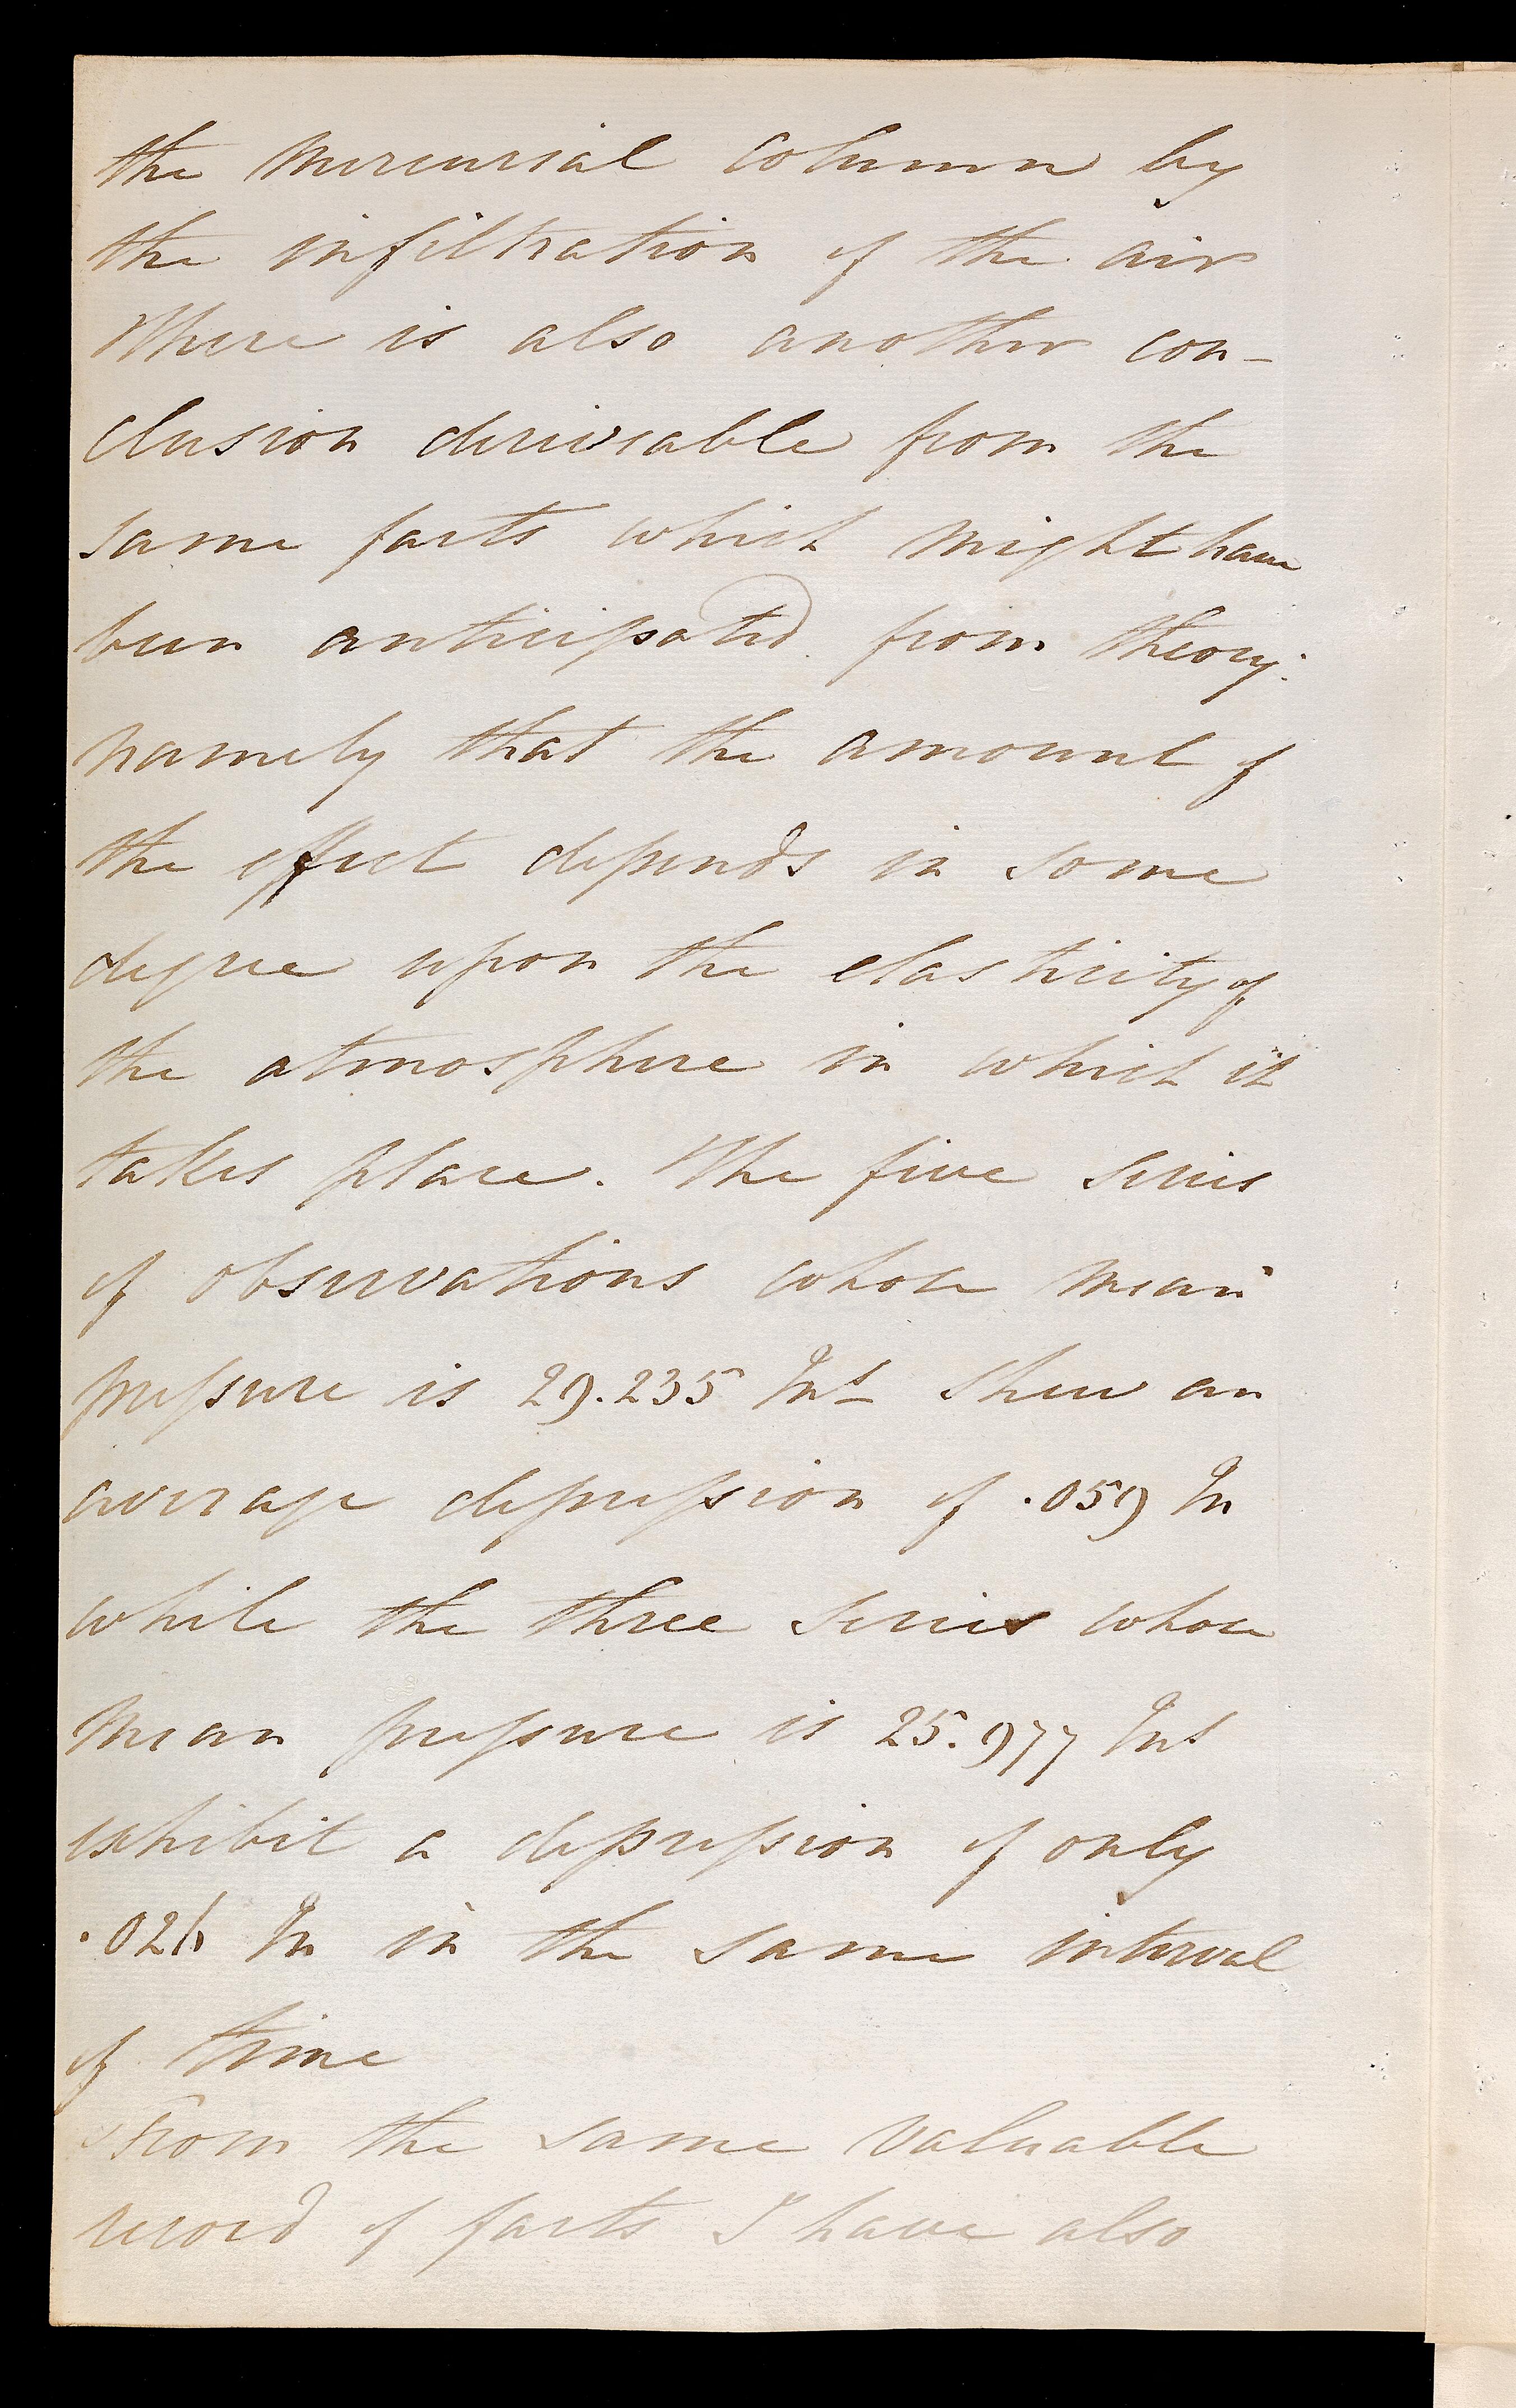 the mercurial column by
the infiltration of the air
There is also another con-
clusion deriveable from the
same facts which might have
been anticipated from theory.
namely that the amount of
the effect depends in some
degree upon the elasticity of
the atmosphere in which it
takes place. The five series
of observations whose mean
pressure is 29.235 Ins shew an
average depression of .059 In
while the three series whose
mean pressure is 25.977 Ins
exhibit a depression of only
In in the same interval
of time
From the same valuable
record of facts I have also